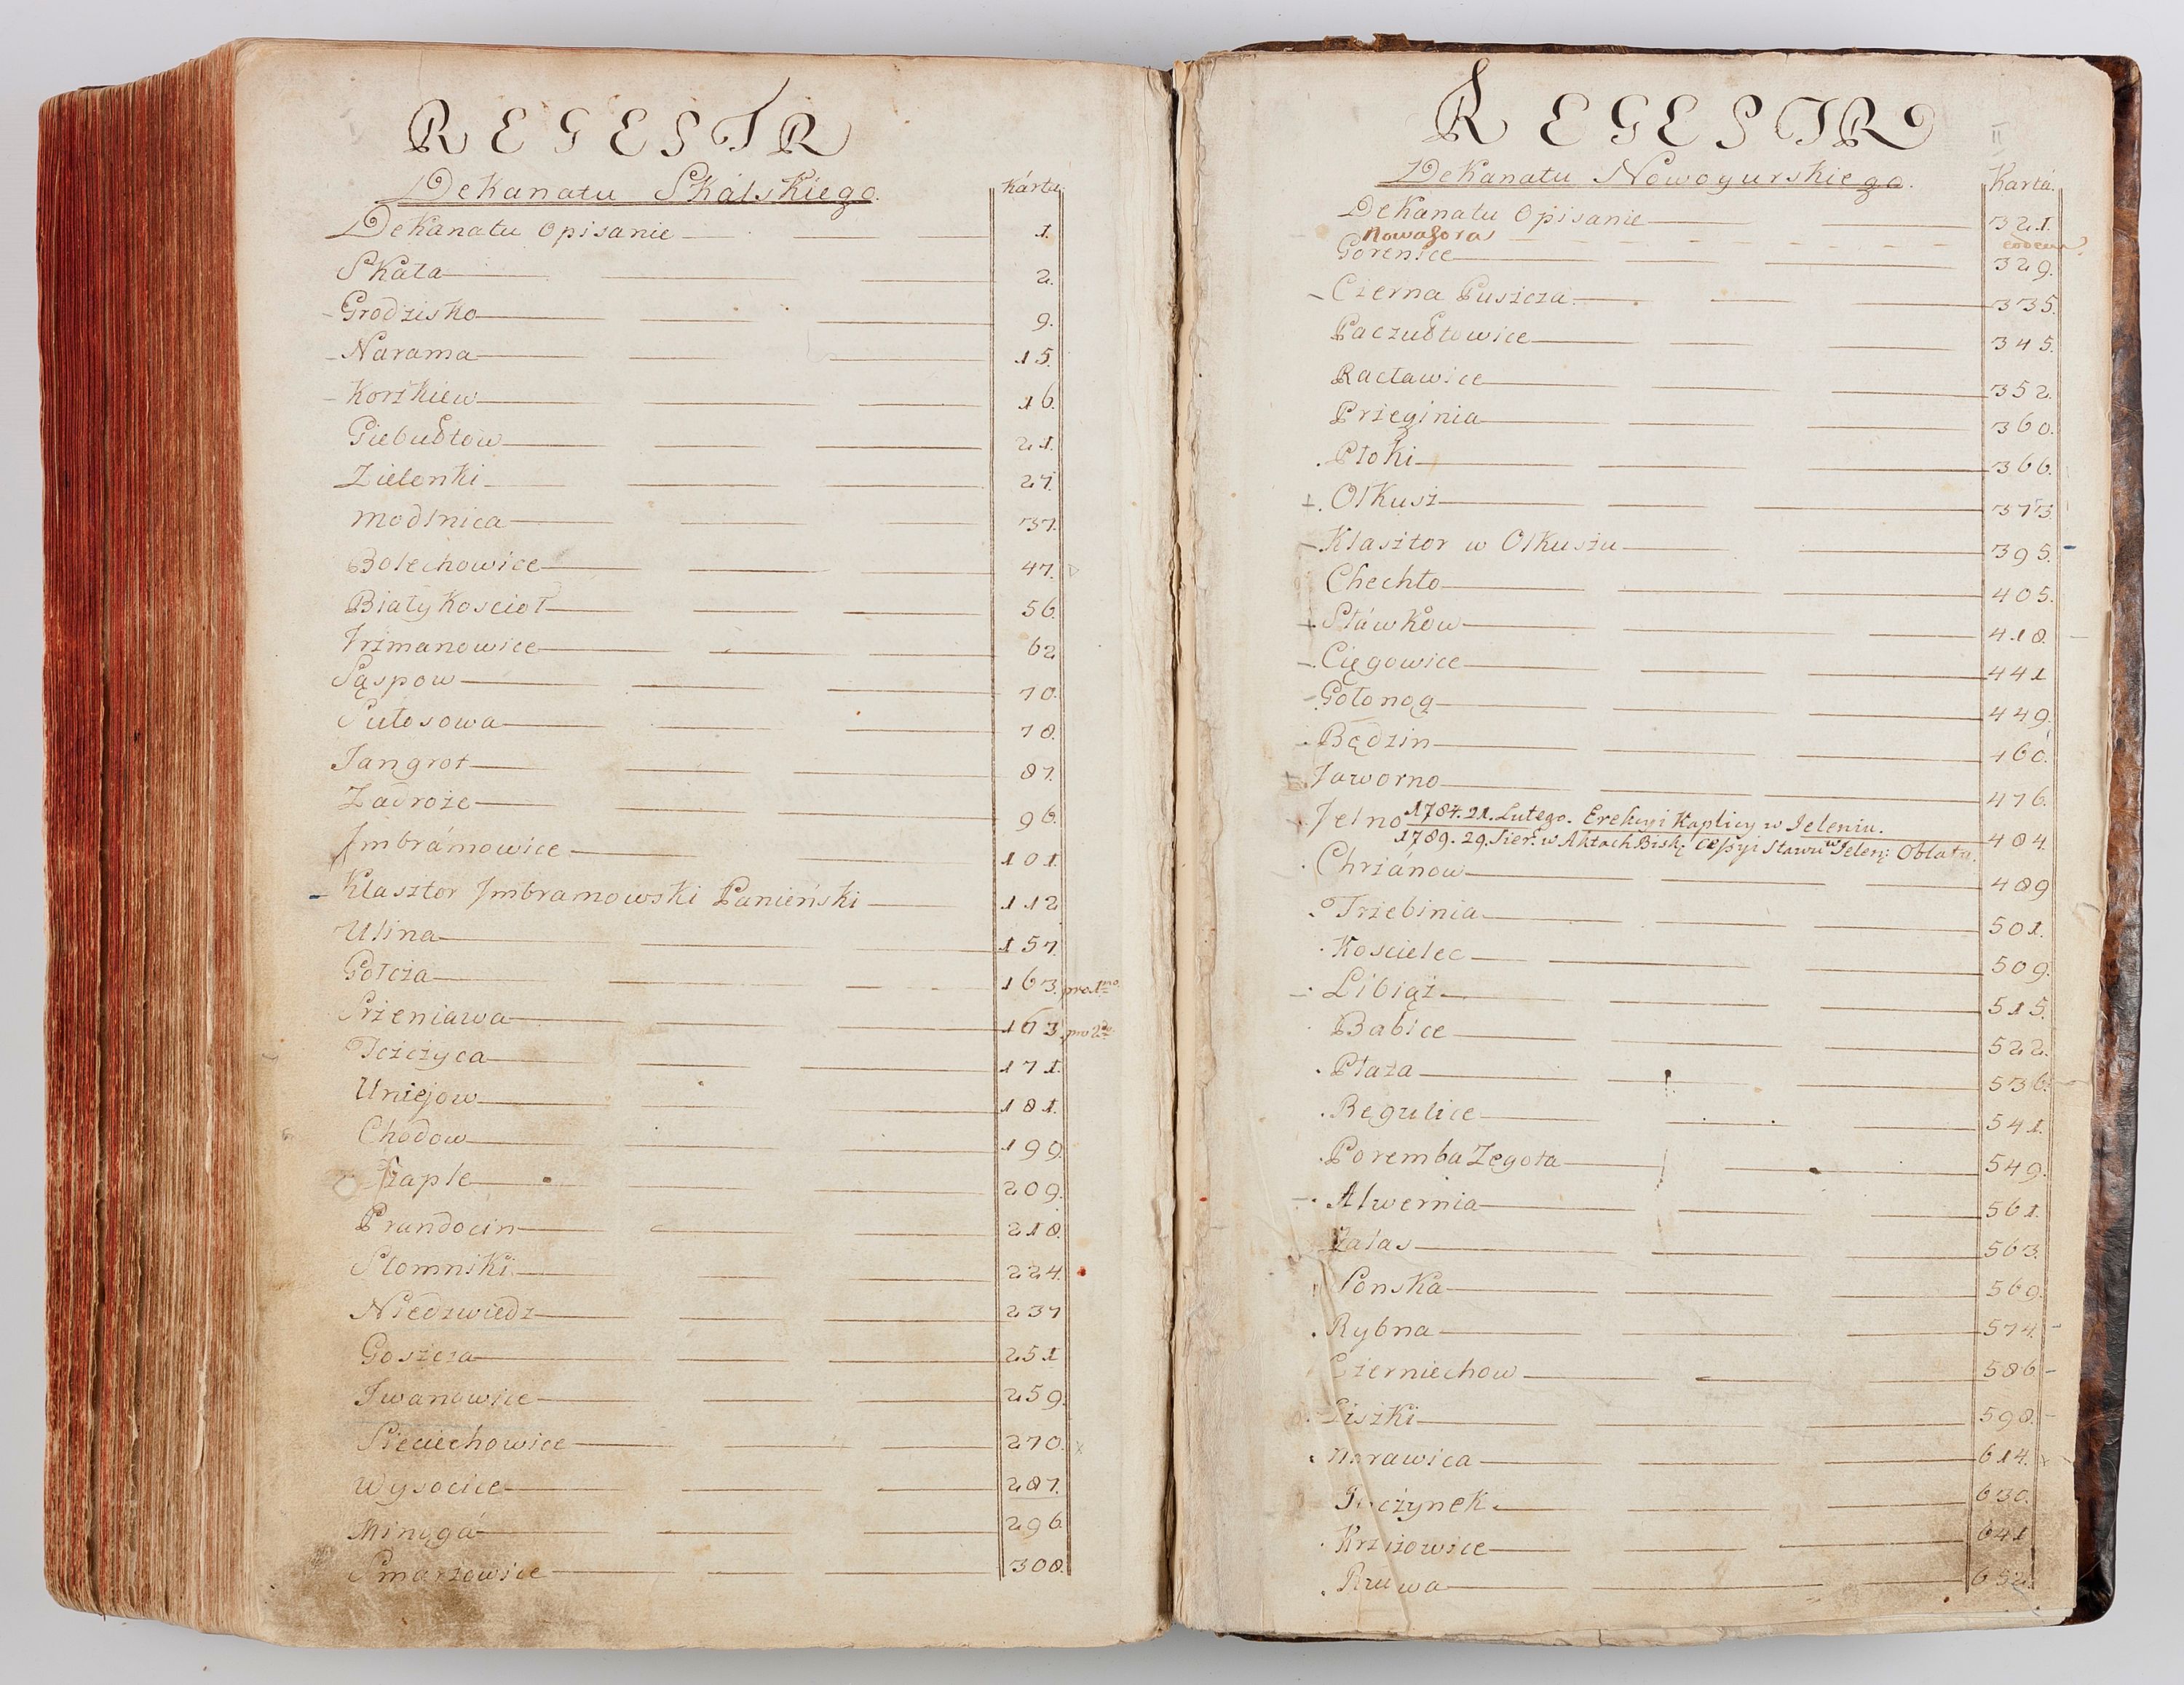 REGESTR
Dekanatu Skálskiego.
Kárta.
Dekanatu Opisanie 1.
Skała 2.
Grodzisko 9.
Narama 15.
Korzkiew 16.
Giebułtow 21.
Zielonki 27.
Modlnica 37.
Bolechowice 47.
Biały Koscioł 56.
Jrzmanowice 62
Sąspow 70.
Sułosowa 78.
Jangrot 87.
Zadroże 96.
Jmbrámowice 101.
Klasztor Jmbramowski Panieński 112
Ulina 157.
Gołcża 163. pro 1mo
Szreniawa 163. pro 2do
Tcżcżyca 171.
Uniejow 181.
Chodow 199.
Szaple 209.
Prandocin 218.
Słomniki 224.
Niedzwiedz 237
Goszcza 251
Jwanowice 259.
Sieciechowice 270.
Wysocice 287.
Minogá 296
Smarzowice 308.
REGESTR
II
Dekanatu Nowogurskiego.
Kartá.
Dekanatu Opisanie 321.
Nowagora eodem
Gorenice 329.
Czerna Puszcza 335.
Paczułtowice 345.
Racławice 352.
Przeginia 360.
Płoki 366.
Olkusz 373
Klasztor w Olkuszu 395.
Chechło 405.
Słáwków 418.
Cięgowice 441
Gołonog 449.
Będzin 460.
Jaworno 476.
Jelno 1784. 21. Lutego. Erekcyi Kaplicy w Jeleniu. 484.
1789. 29. Sier. w Aktach Bisk. Cessyi Stawu w Jelen: Oblata.
Chrzánow 489
Trzebinia 501.
Koscielec 509.
Libiąż 515.
Babice 522.
Płaza 536.
Regulice 541.
Poremba Zegota 549.
Alwernia 561.
Zalas 563.
Sonska 569.
Rybna 574.
Czerniechow 586
Liszki 598.
Morawica 614.
Tęczynek 630.
Krzizowice 641
Ruuwa 652.